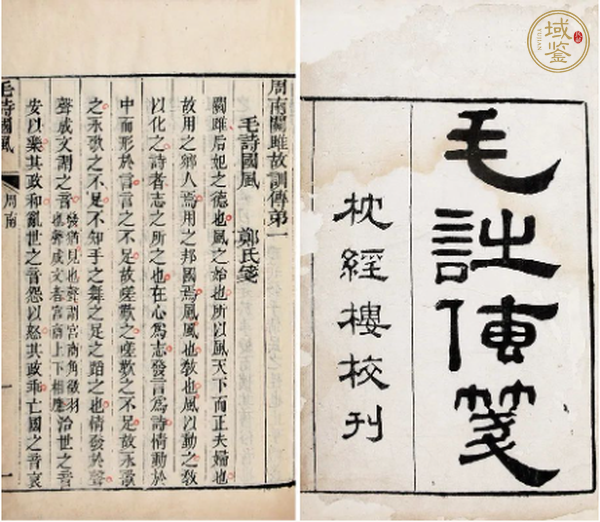 域鉴
YUJIAN
毛詩傳箋
枕經樓校刊
周南關雎故訓傳第一
毛詩國風 鄭氏箋
關雎后妃之德也風之始也所以風天下而正夫婦也
故用之鄉人焉用之邦國焉風風也敎也風以動之敎
以化之詩者志之所之也在心爲志發言爲詩情動於
中而形於言言之不足故嗟歎之嗟歎之不足故永歌
之永歌之不足不知手之舞之足之蹈之也情發於聲
聲成文謂之音 發猶見也聲謂宮商角徵羽
也聲成文者宮商上下相應 治世之音
安以樂其政和亂世之音怨以怒其政乖亡國之音哀
毛詩國風 周南 一